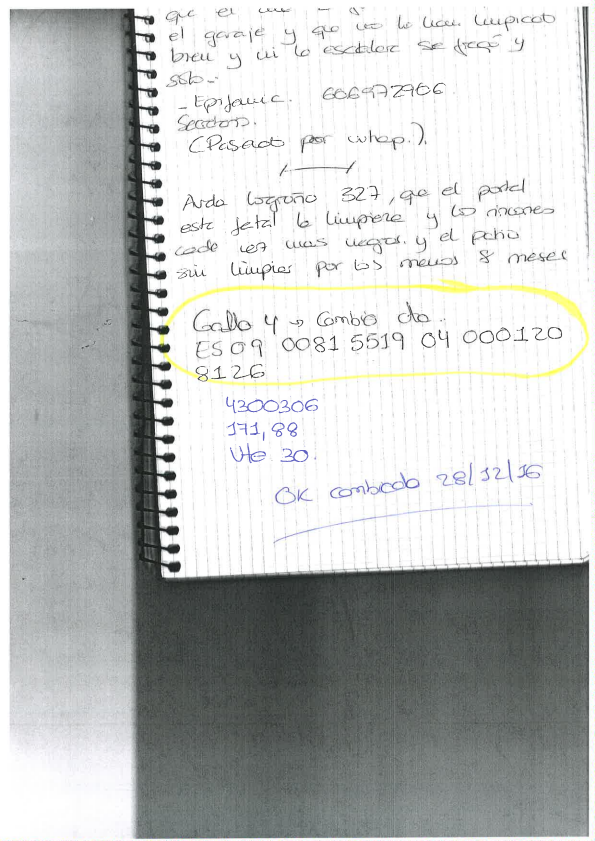 que el
el garaje y que no lo han limpiado
bien y ni la escalera se fregó y
ssb.-
- Epifanic. 606972906.
(Pasado por whap.).
Avda Logroño 327, que el portal
este fatal la limpieza y los rincones
cada vez mas negros. y el patio
sin limpiar por los menos 8 meses
Gallo 4 → Cambio cta.
ES09 0081 5519 04 000120
8126
4300306
171,88
Vte 30.
OK cambiado 28/12/16